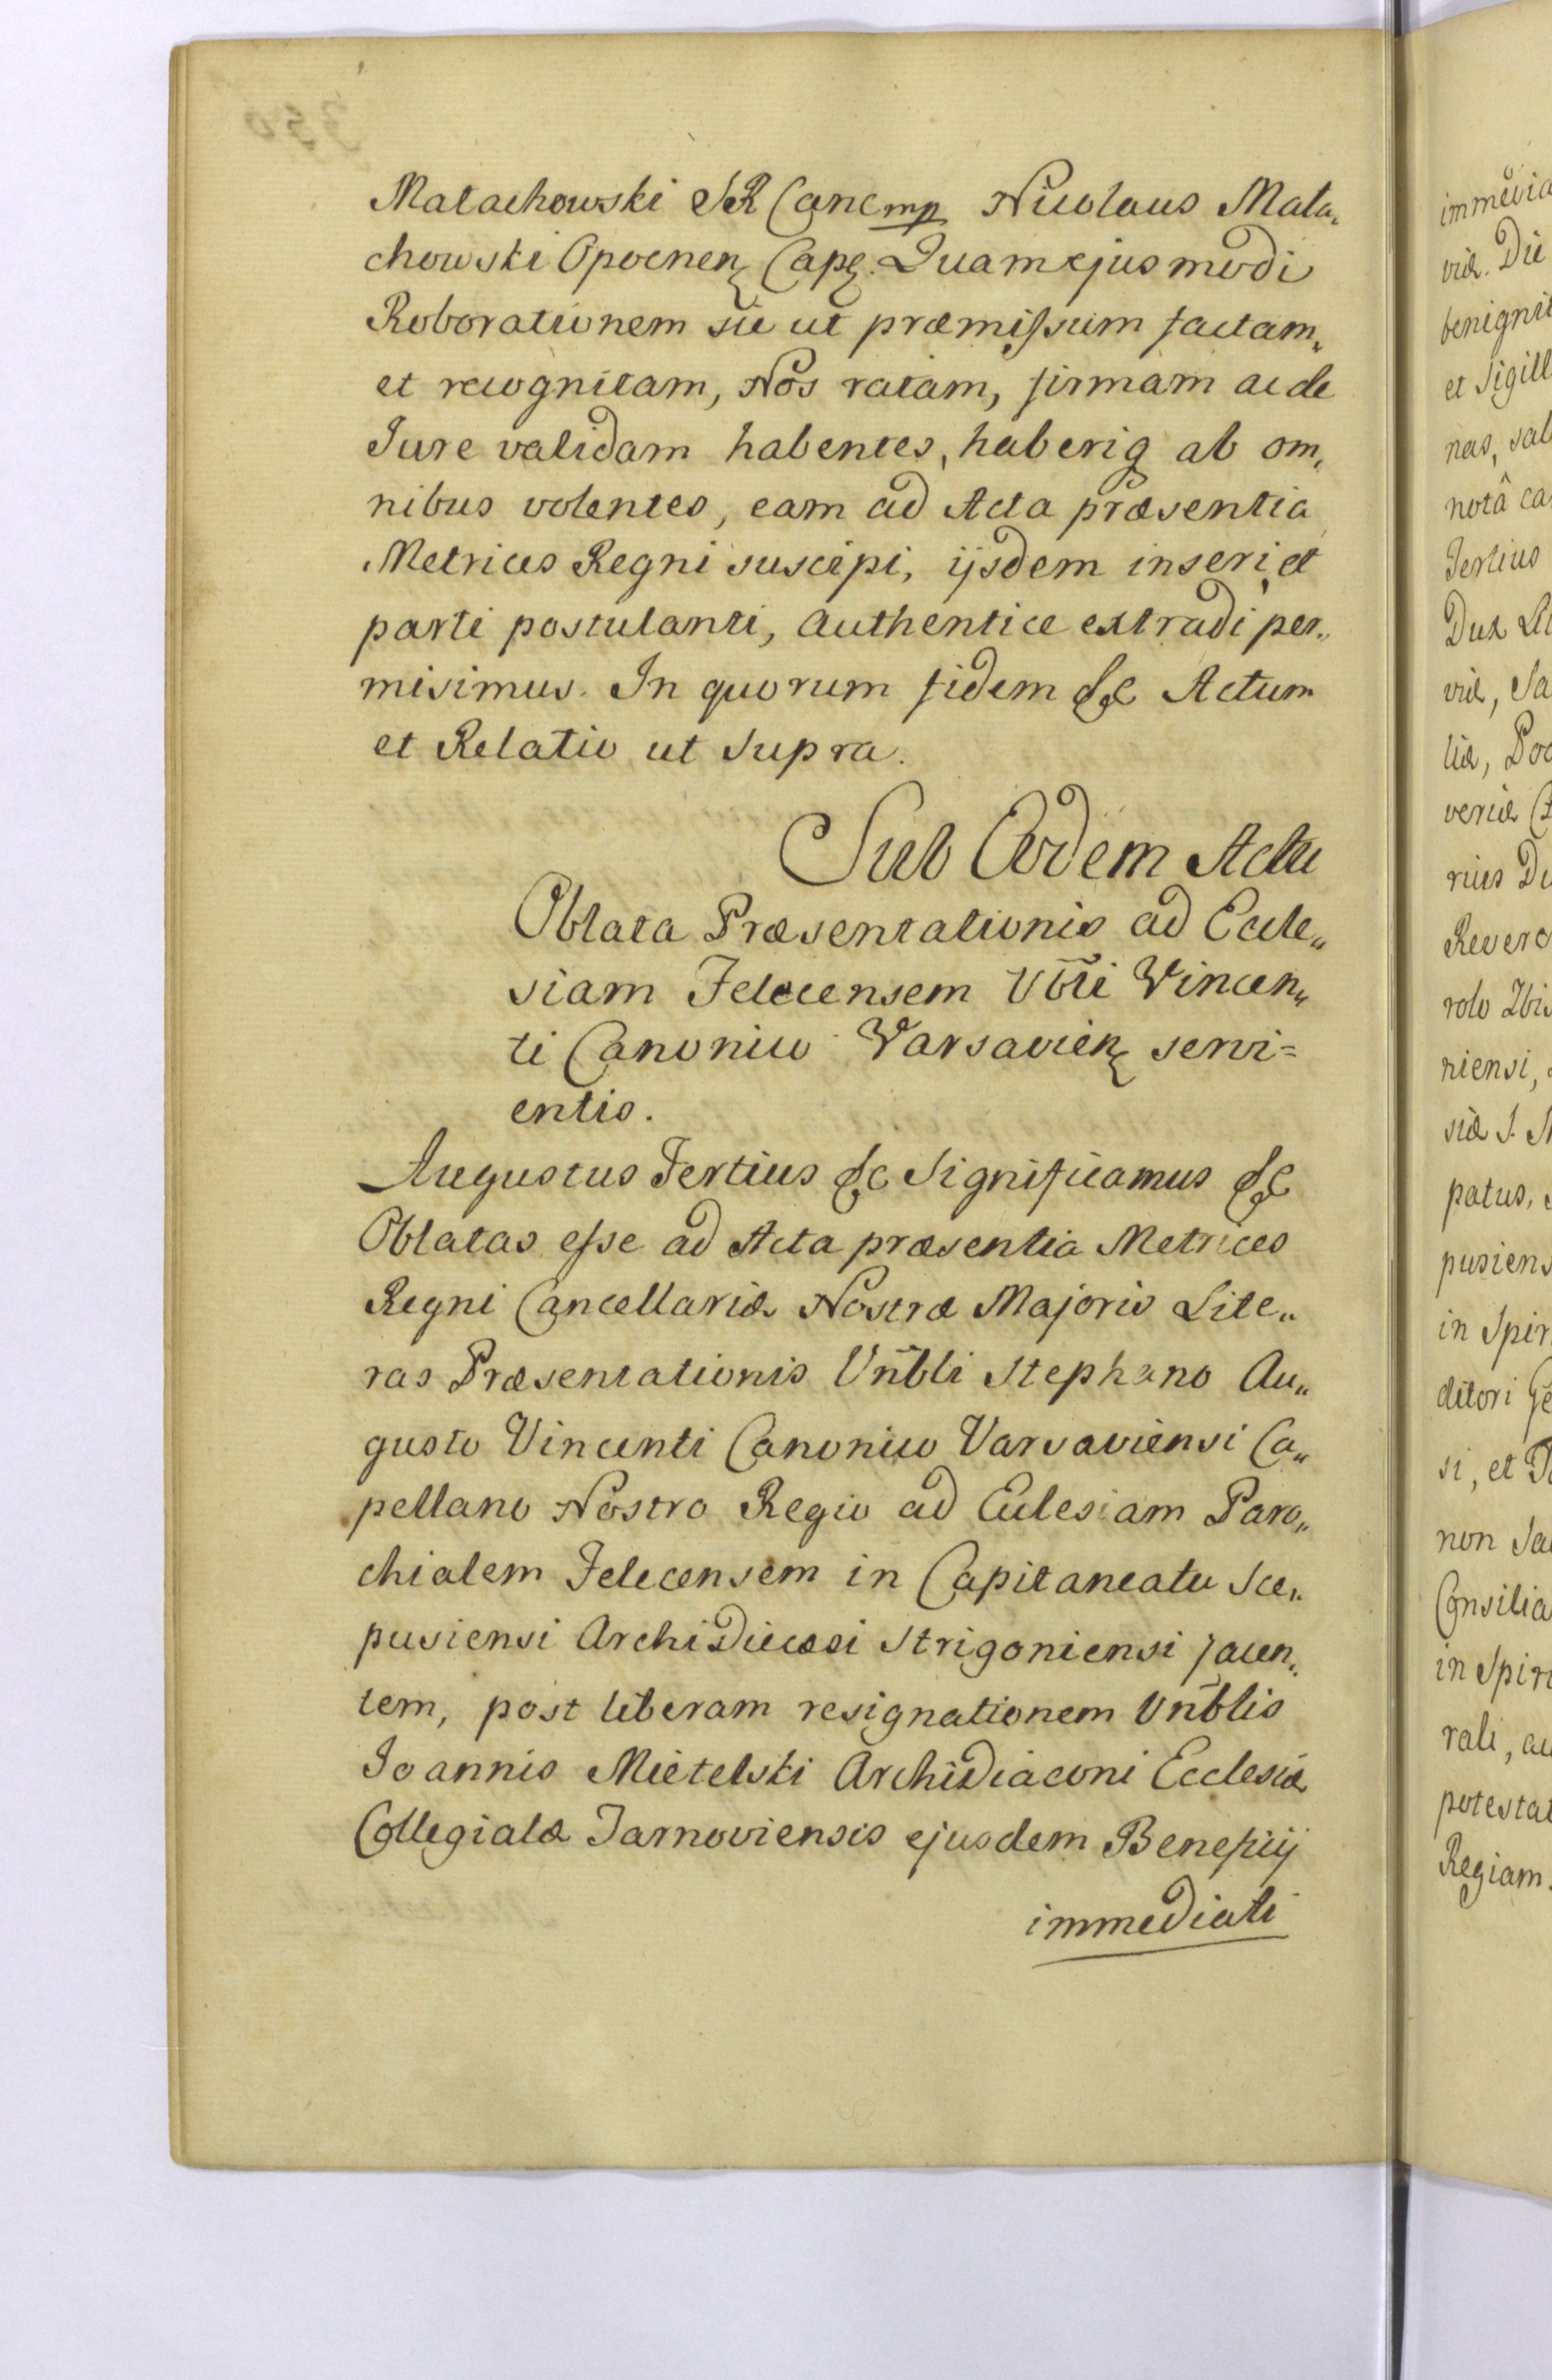 Małachowski SR Canc mp Nicolaus Mała„
chowski Opocnen Cap. Quam ejusmodi
Roborationem sic ut præmissum factam„
et recognitam, Nos ratam, firmam ac de
Jure validam habentes, haberiq ab om„
nibus volentes, eam ad Acta præsentia
Metrices Regni suscipi, ijsdem inseri, et
parti postulanti, authentice extradi per„
misimus. In quorum fidem &c Actum
et Relatio ut Supra.
Sub Eodem Actu
Oblata Præsentationis ad Eccle„
siam Felecensem Vbli Vincen„
ti Canonico Varsavien servi=
entis.
Augustus Tertius &c Significamus &c
Oblatas esse ad Acta præsentia Metrices
Regni Cancellariæ Nostræ Majoris Lite„
ras Præsentationis Vnbli Stephano Au„
gusto Vincenti Canonico Varsaviensi Ca„
pellano Nostro Regio ad Eclesiam Paro„
chialem Felecensem in Capitaneatu Sce„
pusiensi Archidiecæsi Strigoniensi jacen„
tem, post liberam resignationem Vnblis
Joannis Mietelski Archidiaconi Ecclesiæ
Collegialæ Tarnoviensis ejusdem Beneficij
immediati
immedia
viæ. Die
benignit
et Sigill
nas, sal
notâ ca
Tertius
Dux Li
viæ, Sa
liæ, Pod
veriæ
rius Du
Revere
rolo Zbi
niensi,
siæ S. M
patus,
pusiens
in Spir
ditori Ge
si, et
non Sa
Consilia
in Spiri
rali, ac
potestat
Regiam